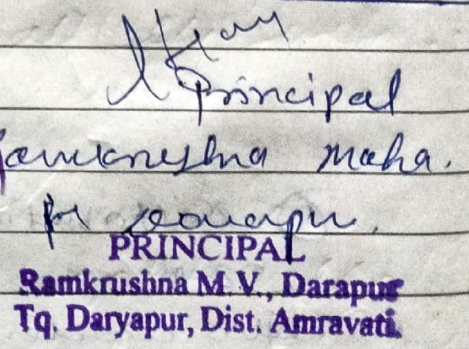 Principal
Ramkrushna Maha.
PRINCIPAL
Ramkrushna M.V., Darapur
Tq. Daryapur, Dist. Amravati.